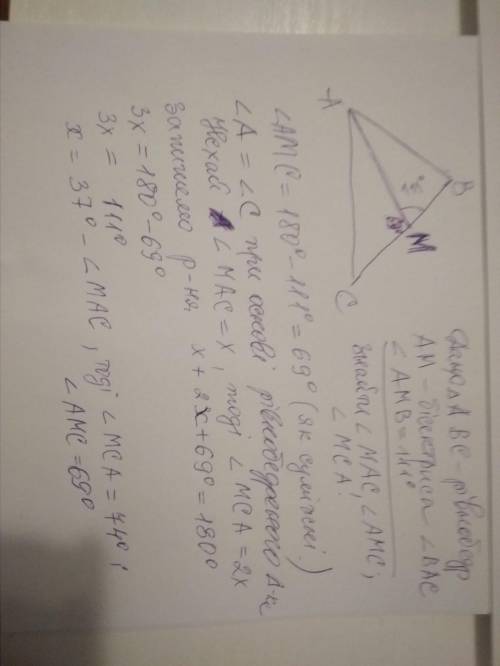 B
A
M
C
Дано: Δ ABC – рівнобедр
AM – бісектриса ∠BAC
∠AMB = 111°
Знайти ∠MAC, ∠AMC,
∠MCA.
∠AMC = 180° – 111° = 69° (як суміжні.)
∠A = ∠C при основі рівнобедреного Δ-ка
Нехай ∠MAC = x, тоді ∠MCA = 2x
Запишемо р-ня, x + 2x + 69° = 180°
3x = 180° – 69°
3x = 111°
x = 37° – ∠MAC, тоді ∠MCA = 74°;
∠AMC = 69°